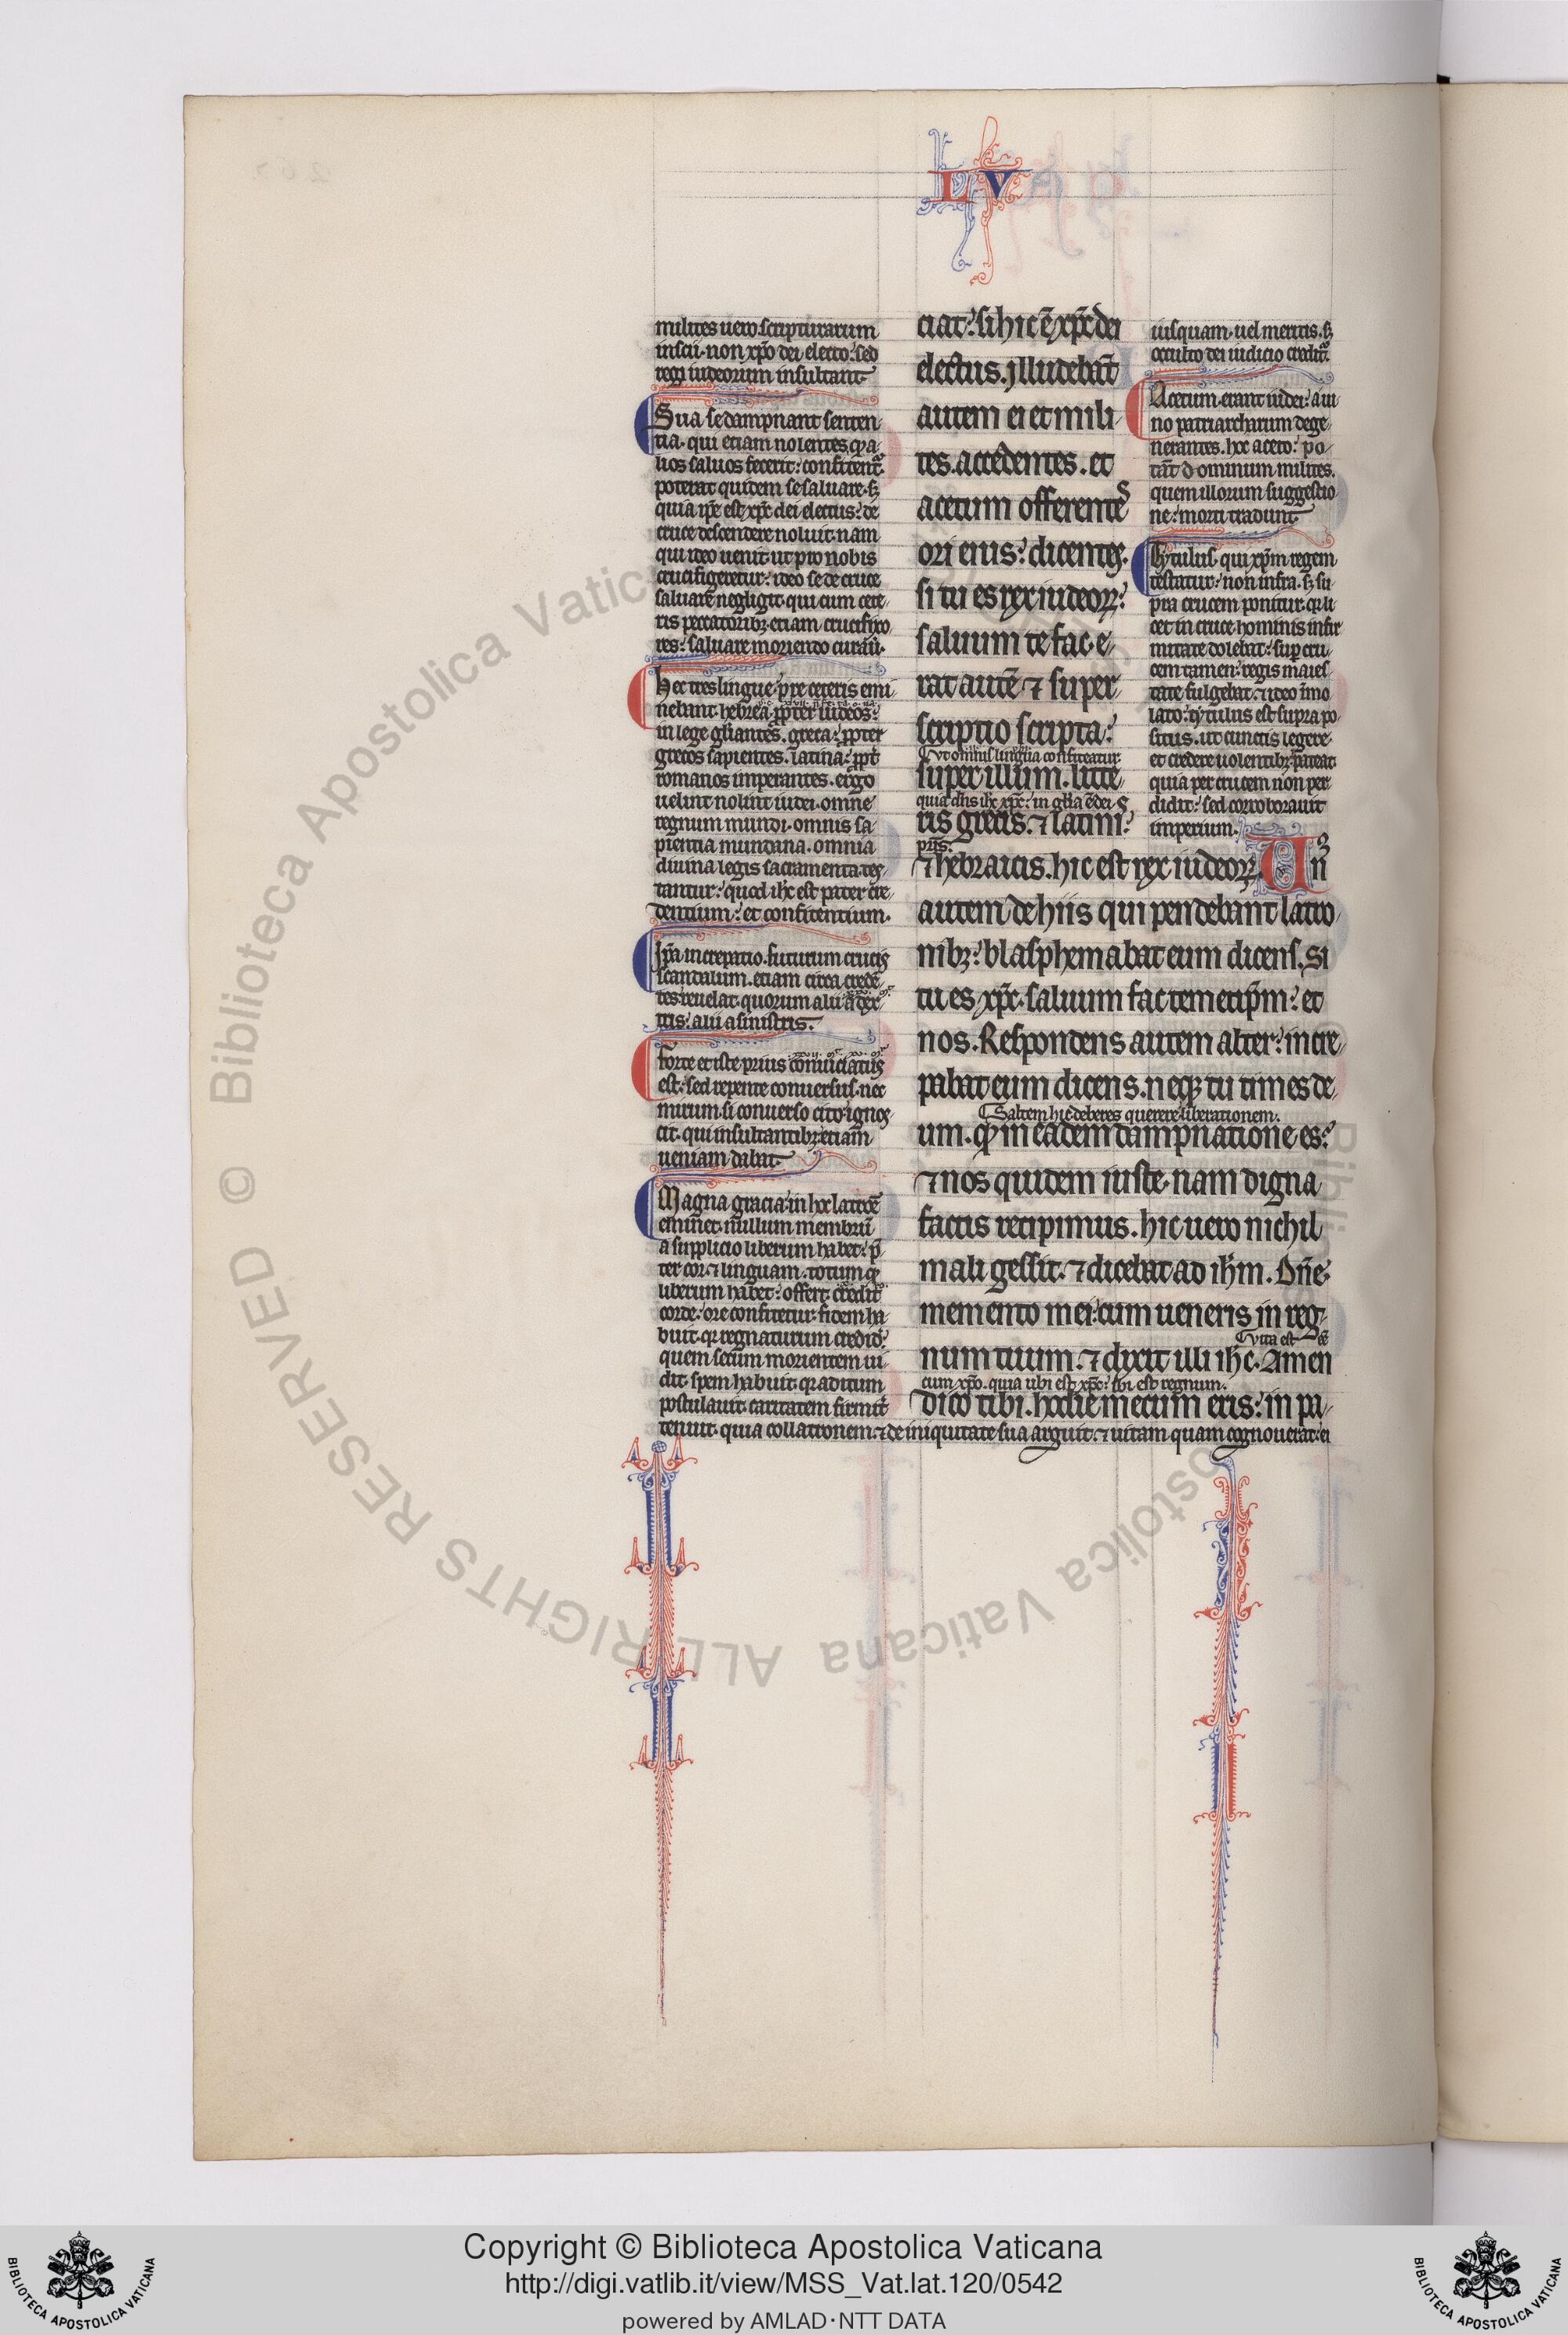 LV
milites uero scripturarum
inscii· non xp̄o dei electo: sed
regi iudeorum insultant.
Sua se dampnant senten-
tia· qui etiam nolentes qd̄ a-
lios saluos fecerit: confitent᷑.
poterat quidem se saluare. sꝫ
quia ip̄e est xp̄c dei electus: de
cruce descendere noluit· nam
qui ideo uenit ut pro nobis
crucifigeretur: ideo se de cruce
saluare negligit· qui cum cete-
ris peccatoribꝫ· etiam crucifixo
res: saluare moriendo curauit.
Hee tres lingue· pre ceteris emi-
nebant· hebrea ꝓpter iudeos:
in lege gl̄iantes. greca: ꝓpter
grecos sapientes. latina: ꝓpt̄
romanos imperantes. ergo
uelint nolint iudei· omne
regnum mundi· omnis sa-
pientia mundana. omnia
diuina legis sacramenta tes-
tantur: quod ih̄c est pater cre-
dentium: et confitentium.
Ip̄a increpatio. futurum crucis
scandalum· etiam circa crede-
tes reuelat· quorum alii a dex-
tris: alii a sinistris.
Forte et iste prius conuiciatus
est: sed repente conuersus. nec
mirum si conuerso cito ignos-
cit· qui insultantibꝫ etiam
ueniam dabat.
Magna gracia in hoc latrone
eminet· nullum membrū
a supplicio liberum habet: p̄-
ter cor ⁊ linguam· totum qd̄
liberum habet: offert· credit
corde: ore confitetur· fidem ha-
buit· qr̄ regnaturum credid̄:
quem secum morientem ui-
dit· spem habuit· qr̄ aditum
postulauit· caritatem firmit̄
tenuit· quia collatronem· ⁊ de iniquitate sua arguit· ⁊ uitam quam cognouerat: ei
ciat: si hic ē xp̄c dei
electus. jlludebāt
autem ei et mili-
tes. accedentes. et
acetum offerentes
ori eius: dicentes.
si tu es rex iudeoꝝ:
saluum te fac. e-
rat autē ⁊ super-
scriptio scripta:
Vt omnis lingua confiteatur
super illum. litte-
quia dn̄s ih̄c xp̄c: in gl̄ia ē dei
ris grecis. ⁊ latinis:
pr̄is.
⁊ hebraicis. hic est rex iudeoꝝ. Vn
autem de hiis qui pendebant latro-
nibꝫ: blasphemabat eum dicens. Si
tu es xp̄c. saluum fac temetip̄m: et
nos. Respondens autem alter: incre-
pabat eum dicens. neqꝫ tu times de-
Saltem hic deberes querere liberationem.
um. qd̄ in eadem dampnatione es:
⁊ nos quidem iuste. nam digna
factis recipimus. hic uero nichil
mali gessit. ⁊ dicebat ad ih̄m. Dn̄e.
memento mei: cum ueneris in reg-
Vita est eē
num tuum. ⁊ dixit illi ih̄c. Amen
cum xp̄o. quia ubi est xp̄c: ibi est regnum.
dico tibi. hodie mecum eris: in pa-
iusquam· uel meritis. sꝫ
occulto dei iudicio credit᷑.
Acetum erant iudei: a ui-
no patriarcharum dege-
nerantes. hoc aceto: po-
tāt dominum milites.
quem illorum suggestio-
ne: morti tradunt.
Tytulus· qui xp̄m regem
testatur: non infra· sꝫ su-
pra crucem ponitur. qr̄ li-
cet in cruce· hominis infir-
mitate dolebat: super cru-
cem tamen: regis maies-
tate fulgebat. ⁊ ideo immo-
lato: tytulus est supra po-
situs. ut cunctis legere·
et credere uolentibꝫ· pateat·
quia per crucem non per-
didit: sed corroborauit
imperium.
© Biblioteca Apostolica Vaticana
ALL RIGHTS RESERVED
Copyright © Biblioteca Apostolica Vaticana
http://digi.vatlib.it/view/MSS_Vat.lat.120/0542
powered by AMLAD·NTT DATA
BIBLIOTECA APOSTOLICA VATICANA
BIBLIOTECA APOSTOLICA VATICANA